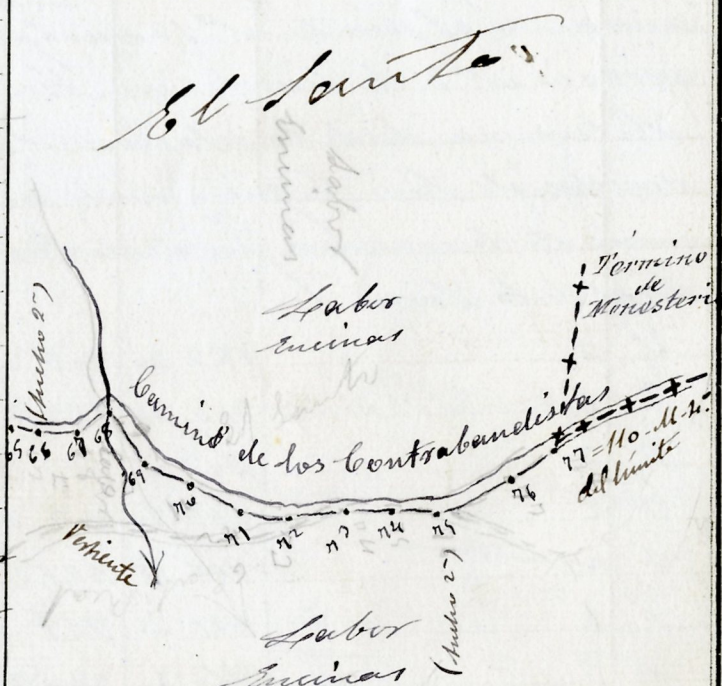 El Santo
Término
de
Monesteri
Labor
Encinas
(Ancho 2m)
Camino de los Contrabandistas
65 66 67 68 69 70 71 72 73 74 75 76 77=110.M.N.
del límite
Vertiente
(Ancho 2m)
Labor
Encinas